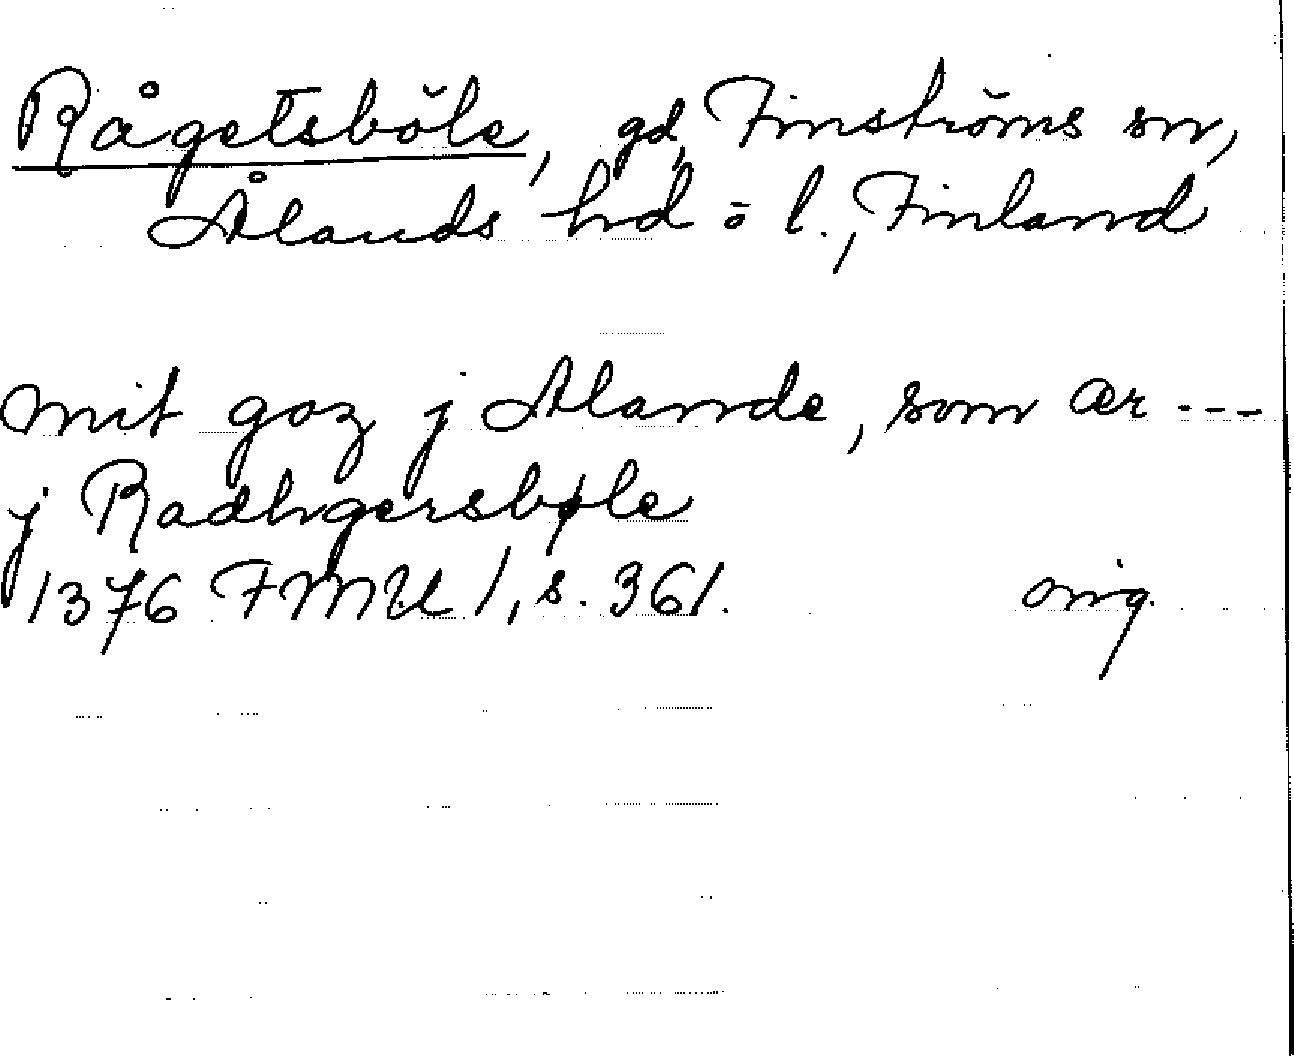 Rågetsböle, gd, Finströms sn,
Ålands hd o l., Finland
mit goz j Alande, som ær ---
j Radhgersbøle
1376 FMU 1, s. 361. orig.